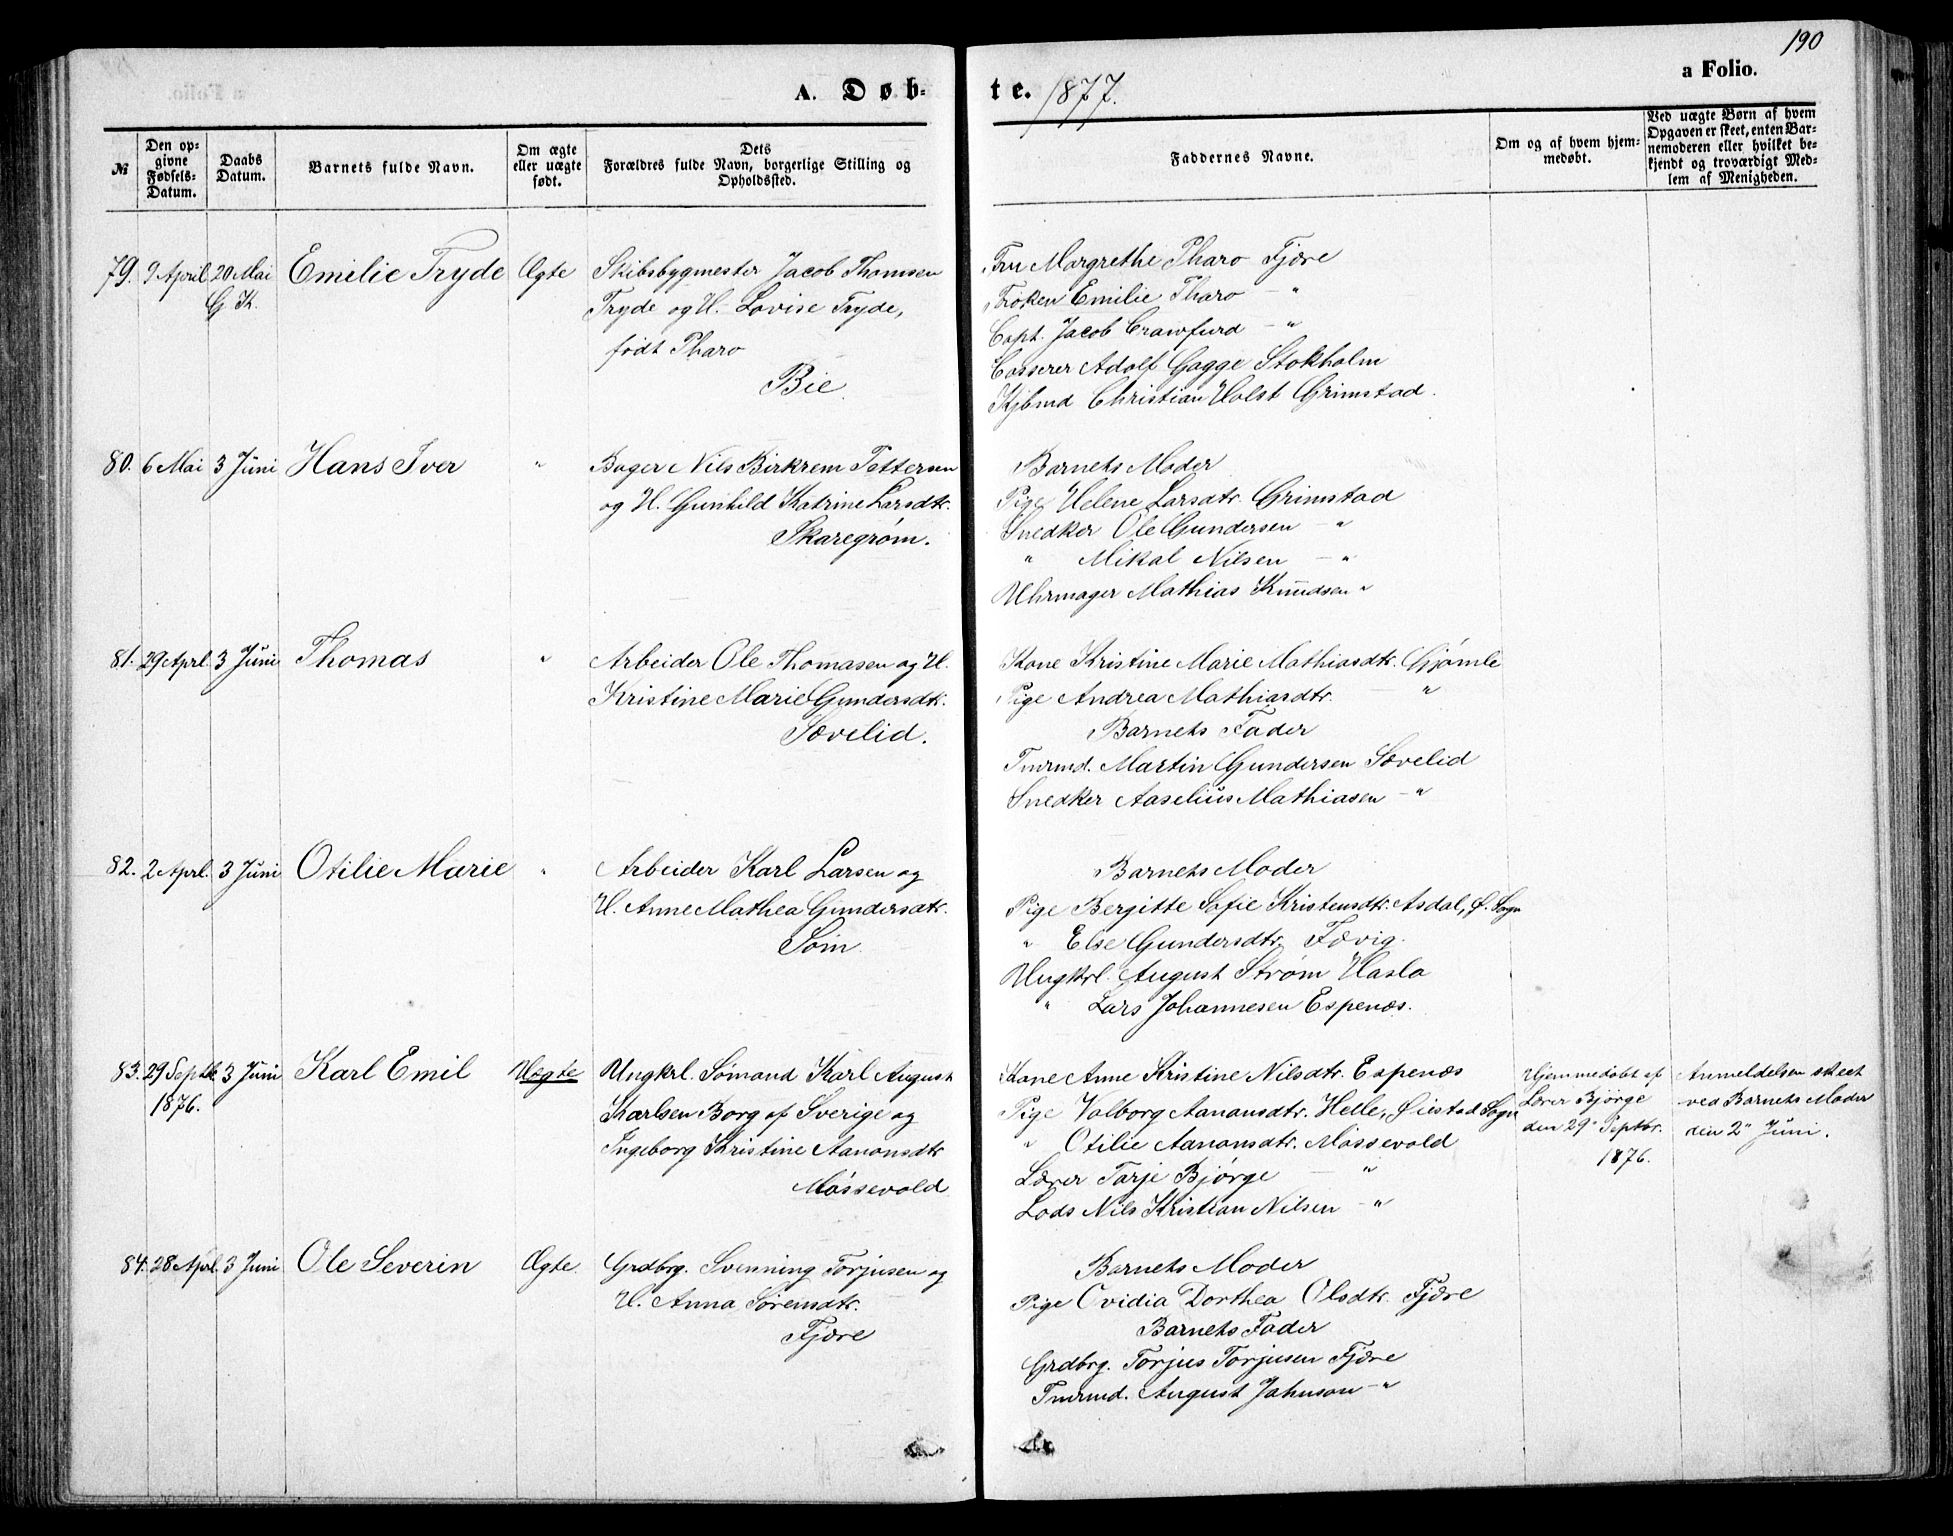 190
a Folio.
A. Døb-
te. 1877.
№
Den opgivne Fødsels-Datum.
Daabs Datum.
Barnets fulde Navn.
Om ægte eller uægte født.
Dets Forældres fulde Navn, borgerlige Stilling og Opholdssted.
Faddernes Navne.
Om og af hvem hjemmedøbt.
Ved uægte Børn af hvem Opgaven er skeet, enten Barnemoderen eller hvilket bekjendt og troværdigt Medlem af Menigheden.
79. 9 April 20 Mai G. K. Emilie Tryde Ægte
Skibsbygmester Jacob Thomsen
Tryde og H. Lovise Tryde,
født Pharo
Bie.
Fru Margrethe Pharo Fjære
Frøken Emilie Pharo – "
Capt. Jacob Crawfurd – "
Casserer Adolf Gagge Stokholm
Kjbmd Christian Holst Grimstad.
80. 6 Mai 3 Juni Hans Iver "
Bager Nils Birkrem Pettersen
og H. Gunhild Katrine Larsdtr.
Skaregrøm.
Barnets Moder
Pige Helene Larsdtr. Grimstad
Snedker Ole Gundersen – "
" Mikal Nilsen – "
Uhrmager Mathias Knudsen "
81. 29 Aprl. 3 Juni Thomas "
Arbeider Ole Thomasen og H.
Kristine Marie Gundersdtr.
Sævelid.
Kone Kristine Marie Mathiasdtr. Gjømle
Pige Andrea Mathiasdtr. "
Barnets Fader
Tmrmd. Martin Gundersen Sævelid
Snedker Aaselius Mathiasen – "
82. 2 Aprl. 3 Juni Otilie Marie "
Arbeider Karl Larsen og
H. Anne Mathea Gundersdtr.
Søm
Barnets Moder
Pige Bergitte Sofie Kristensdtr. Asdal, Ø. Sogn
" Else Gundersdtr. Fævig.
Ungkrl. August Strøm Hasla
" Lars Johannesen Espenæs.
83. 29 Septbr. 1876. 3 Juni Karl Emil Uægte
Ungkrl. Sømand Karl August
Karlsen Borg af Sverige og
Ingeborg Kristine Aanonsdtr
Møssevold
Kone Anne Kristine Nilsdtr. Espenæs
Pige Valborg Aanonsdtr. Helle, Øiestad Sogn
" Otilie Aanonsdtr. Møssevold
Lærer Tarje Bjørge – "
Lods Nils Kristian Nilsen – "
Hjemmedøbt af
Lærer Bjørge
den 29" Septbr.
1876.
Anmeldelsen skeet
ved Barnets Moder
den 2" Juni.
84. 28 Aprl. 3 Juni Ole Severin Ægte.
Grdbrg. Svenning Torjusen og
H. Anna Sørensdtr.
Fjære
Barnets Moder
Pige Ovidia Dorthea Olsdtr. Fjære
Barnets Fader
Grdbrg. Torjus Torjusen Fjære
Tmrmd. August Johnson – "